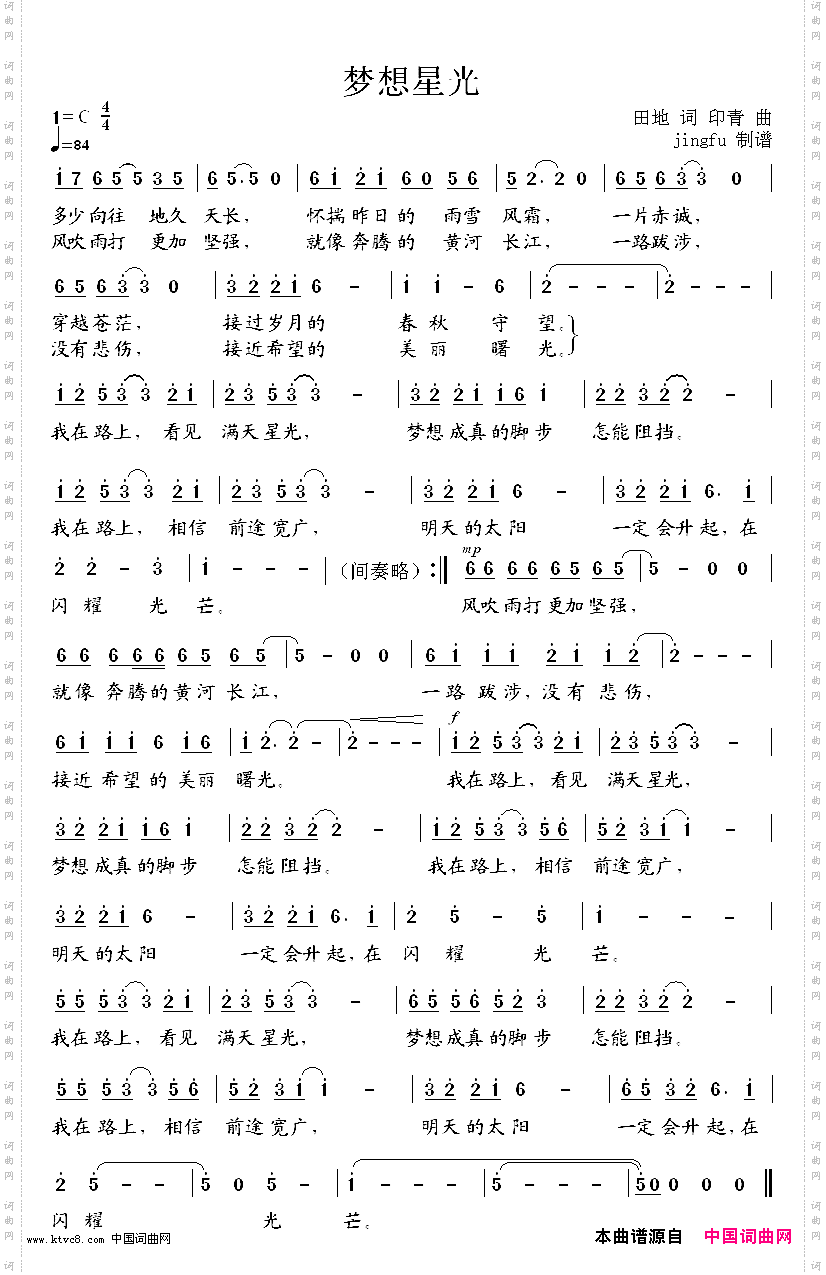 梦想星光
1=C 4/4
田地 词 印青 曲
♩=84
jingfu 制谱
i 7 6 5 5 3 5 | 6 5. 5 0 | 6 i 2 i 6 0 5 6 | 5 2. 2 0 | 6 5 6 3 3 0 |
多少向往 地久 天长， 怀揣昨日的 雨雪 风霜， 一片赤诚，
风吹雨打 更加 坚强， 就像奔腾的 黄河 长江， 一路跋涉，
6 5 6 3 3 0 | 3 2 2 i 6 - | i i - 6 | 2 - - - | 2 - - - |
穿越苍茫， 接过岁月的 春秋 守 望。
没有悲伤， 接近希望的 美丽 曙 光。
i 2 5 3 3 2 i | 2 3 5 3 3 - | 3 2 2 i i 6 i | 2 2 3 2 2 - |
我在路上， 看见 满天星光， 梦想成真的脚步 怎能阻挡。
i 2 5 3 3 2 i | 2 3 5 3 3 - | 3 2 2 i 6 - | 3 2 2 i 6. i |
我在路上， 相信 前途宽广， 明天的太阳 一定会升起，在
2 2 - 3 | i - - - | （间奏略）:‖ mp 6 6 6 6 6 5 6 5 | 5 - 0 0 |
闪耀 光 芒。 风吹雨打更加坚强，
6 6 6 6 6 6 5 6 5 | 5 - 0 0 | 6 i i i 2 i i 2 | 2 - - - |
就像 奔腾的黄河 长江， 一路 跋涉，没有 悲伤，
6 i i i 6 i 6 | i 2. 2 - | 2 - - - | f i 2 5 3 3 2 i | 2 3 5 3 3 - |
接近 希望的 美丽 曙光。 我在路上，看见 满天星光，
3 2 2 i i 6 i | 2 2 3 2 2 - | i 2 5 3 3 5 6 | 5 2 3 i i - |
梦想成真的脚步 怎能阻挡。 我在路上，相信 前途宽广，
3 2 2 i 6 - | 3 2 2 i 6. i | 2 5 - 5 | i - - - |
明天的太阳 一定会升起，在 闪耀 光 芒。
5 5 5 3 3 2 i | 2 3 5 3 3 - | 6 5 5 6 5 2 3 | 2 2 3 2 2 - |
我在路上， 看见 满天星光， 梦想成真的脚步 怎能阻挡。
5 5 5 3 3 5 6 | 5 2 3 i i - | 3 2 2 i 6 - | 6 5 3 2 6. i |
我在路上， 相信 前途宽广， 明天的太阳 一定会升起，在
2 5 - - | 5 0 5 - | i - - - | 5 - - - | 5 - - - | 5 0 0 0 0 ‖
闪耀 光 芒。
www.ktvc8.com 中国词曲网
本曲谱源自 中国词曲网